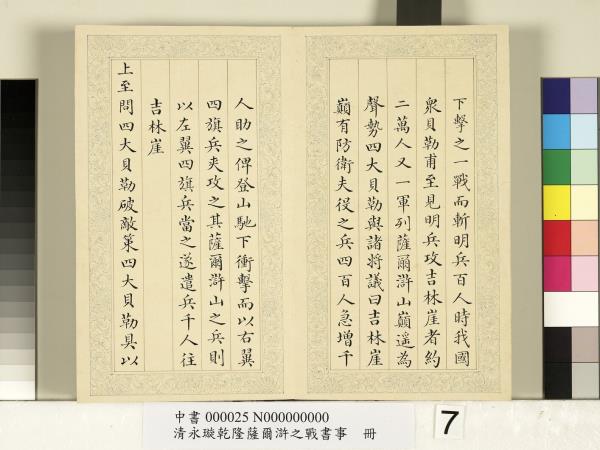 下擊之一戰而斬明兵百人時我國
衆貝勒甫至見明兵攻吉林崖者約
二萬人又一軍列薩爾滸山巔遥為
聲勢四大貝勒與諸將議曰吉林崖
巔有防衛夫役之兵四百人急增千
人助之俾登山馳下衝擊而以右翼
四旗兵夾攻之其薩爾滸山之兵則
以左翼四旗兵當之遂遣兵千人往
吉林崖
上至問四大貝勒破敵策四大貝勒具以
中書 000025 N000000000
清永璇乾隆薩爾滸之戰書事 冊
7